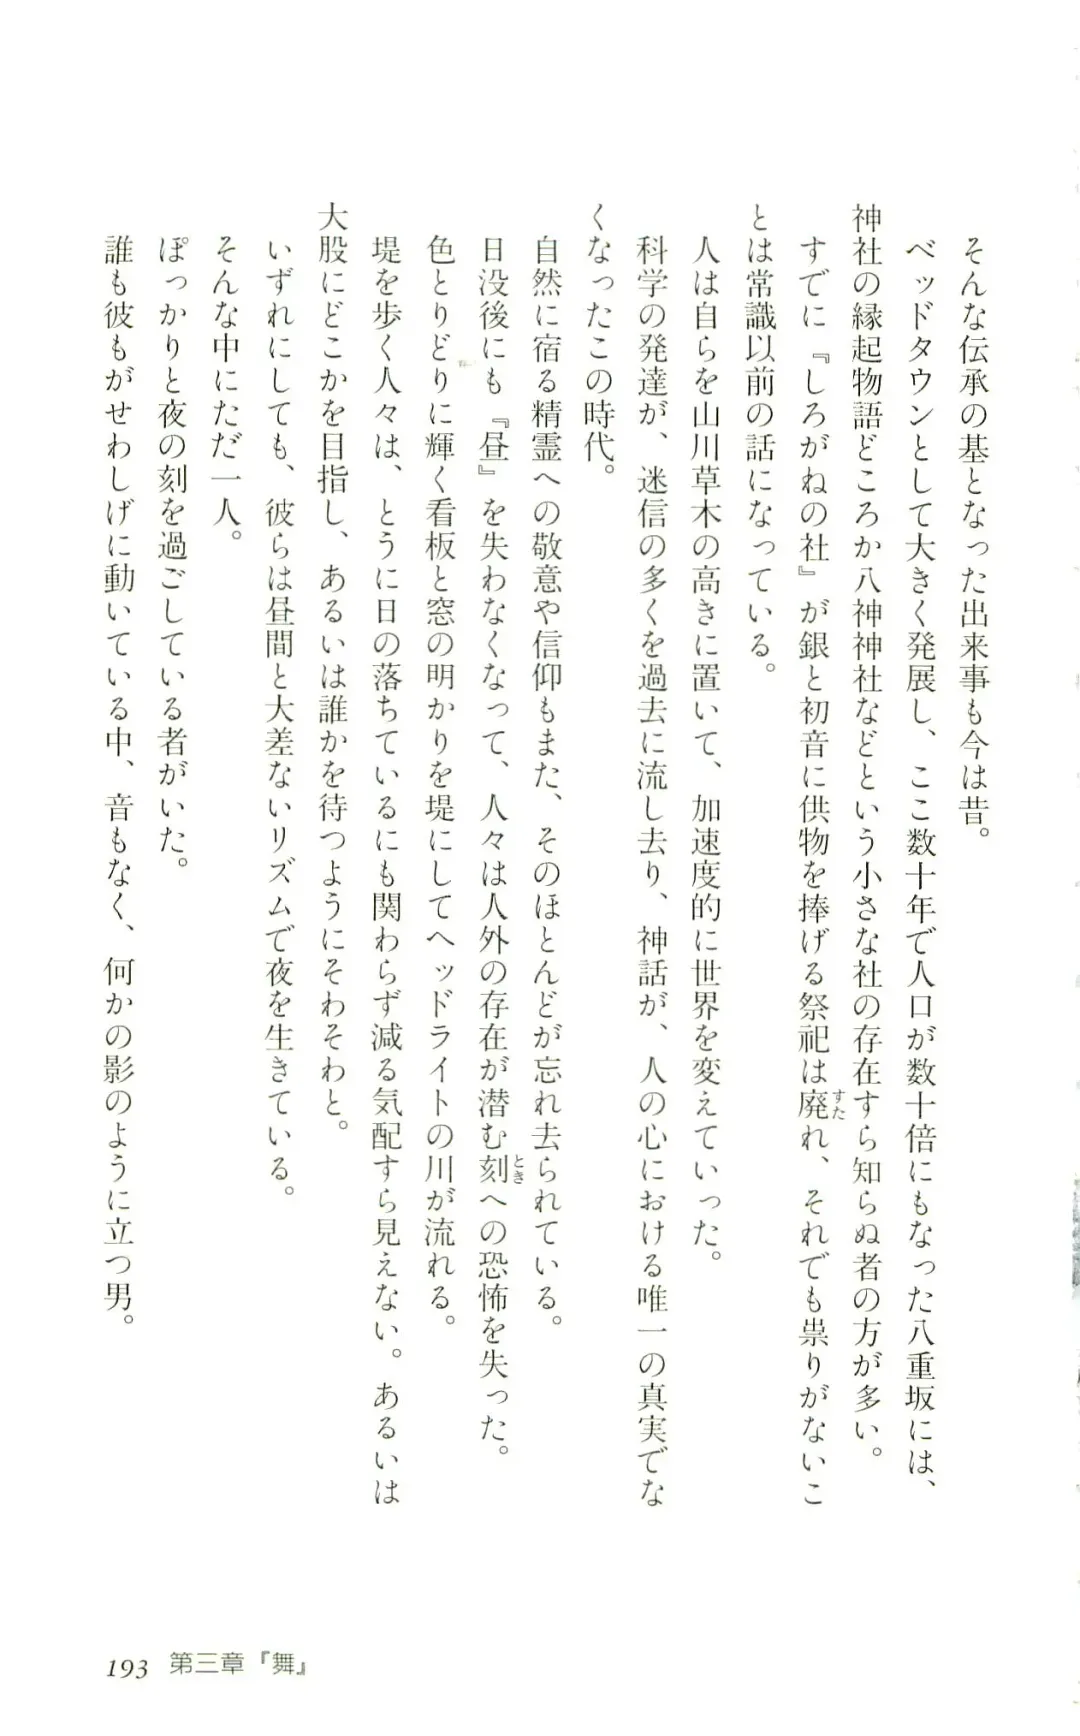 そんな伝承の基となった出来事も今は昔。
ベッドタウンとして大きく発展し、ここ数十年で人口が数十倍にもなった八重坂には、
神社の縁起物語どころか八神神社などという小さな社の存在すら知らぬ者の方が多い。
すでに『しろがねの社』が銀と初音に供物を捧げる祭祀は廃れ、それでも祟りがないこ
すた
とは常識以前の話になっている。
人は自らを山川草木の高きに置いて、加速度的に世界を変えていった。
科学の発達が、迷信の多くを過去に流し去り、神話が、人の心における唯一の真実でな
くなったこの時代。
自然に宿る精霊への敬意や信仰もまた、そのほとんどが忘れ去られている。
日没後にも『昼』を失わなくなって、人々は人外の存在が潜む刻への恐怖を失った。
とき
色とりどりに輝く看板と窓の明かりを堤にしてヘッドライトの川が流れる。
堤を歩く人々は、とうに日の落ちているにも関わらず減る気配すら見えない。あるいは
大股にどこかを目指し、あるいは誰かを待つようにそわそわと。
いずれにしても、彼らは昼間と大差ないリズムで夜を生きている。
そんな中にただ一人。
ぽっかりと夜の刻を過ごしている者がいた。
誰も彼もがせわしげに動いている中、音もなく、何かの影のように立つ男。
193 第三章『舞』